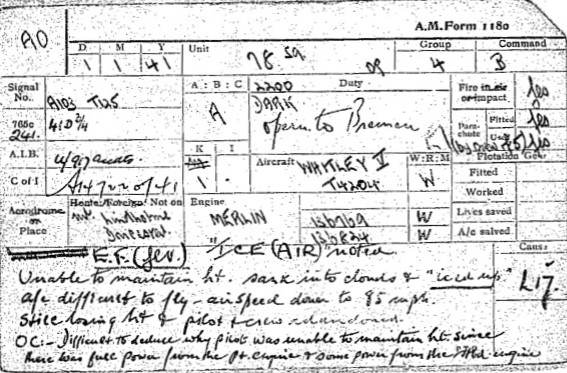 A.M. Form 1180
AO
D M Y Unit Group Command
1 1 41 78 Sq 4 B
Signal No. A103 T125 A : B : C 2200 Duty Fire in air or impact Yes
765c 241. 41D 2/4 A DARK Parachute Fitted Yes
opern to Bremen Used Yes
A.I.B. K I Aircraft WHITLEY V W:R:M Flotation Gear
C of I 1 - T4204 W Fitted
Worked
Aerodrome or Place Home/Foreign/Not on Engine Lives saved
nr. Lindholme MERLIN W A/c salved
Doncaster W
Cause
E.F. (fev.) "ICE (AIR)" noted. L17.
Unable to maintain ht. sank into clouds & "iced up"
a/c difficult to fly - airspeed down to 85 mph.
Still losing ht & pilot & crew abandoned.
OC:- Difficult to deduce why pilot was unable to maintain ht. since
there was full power from the Pt. engine & some power from the Stbd. engine